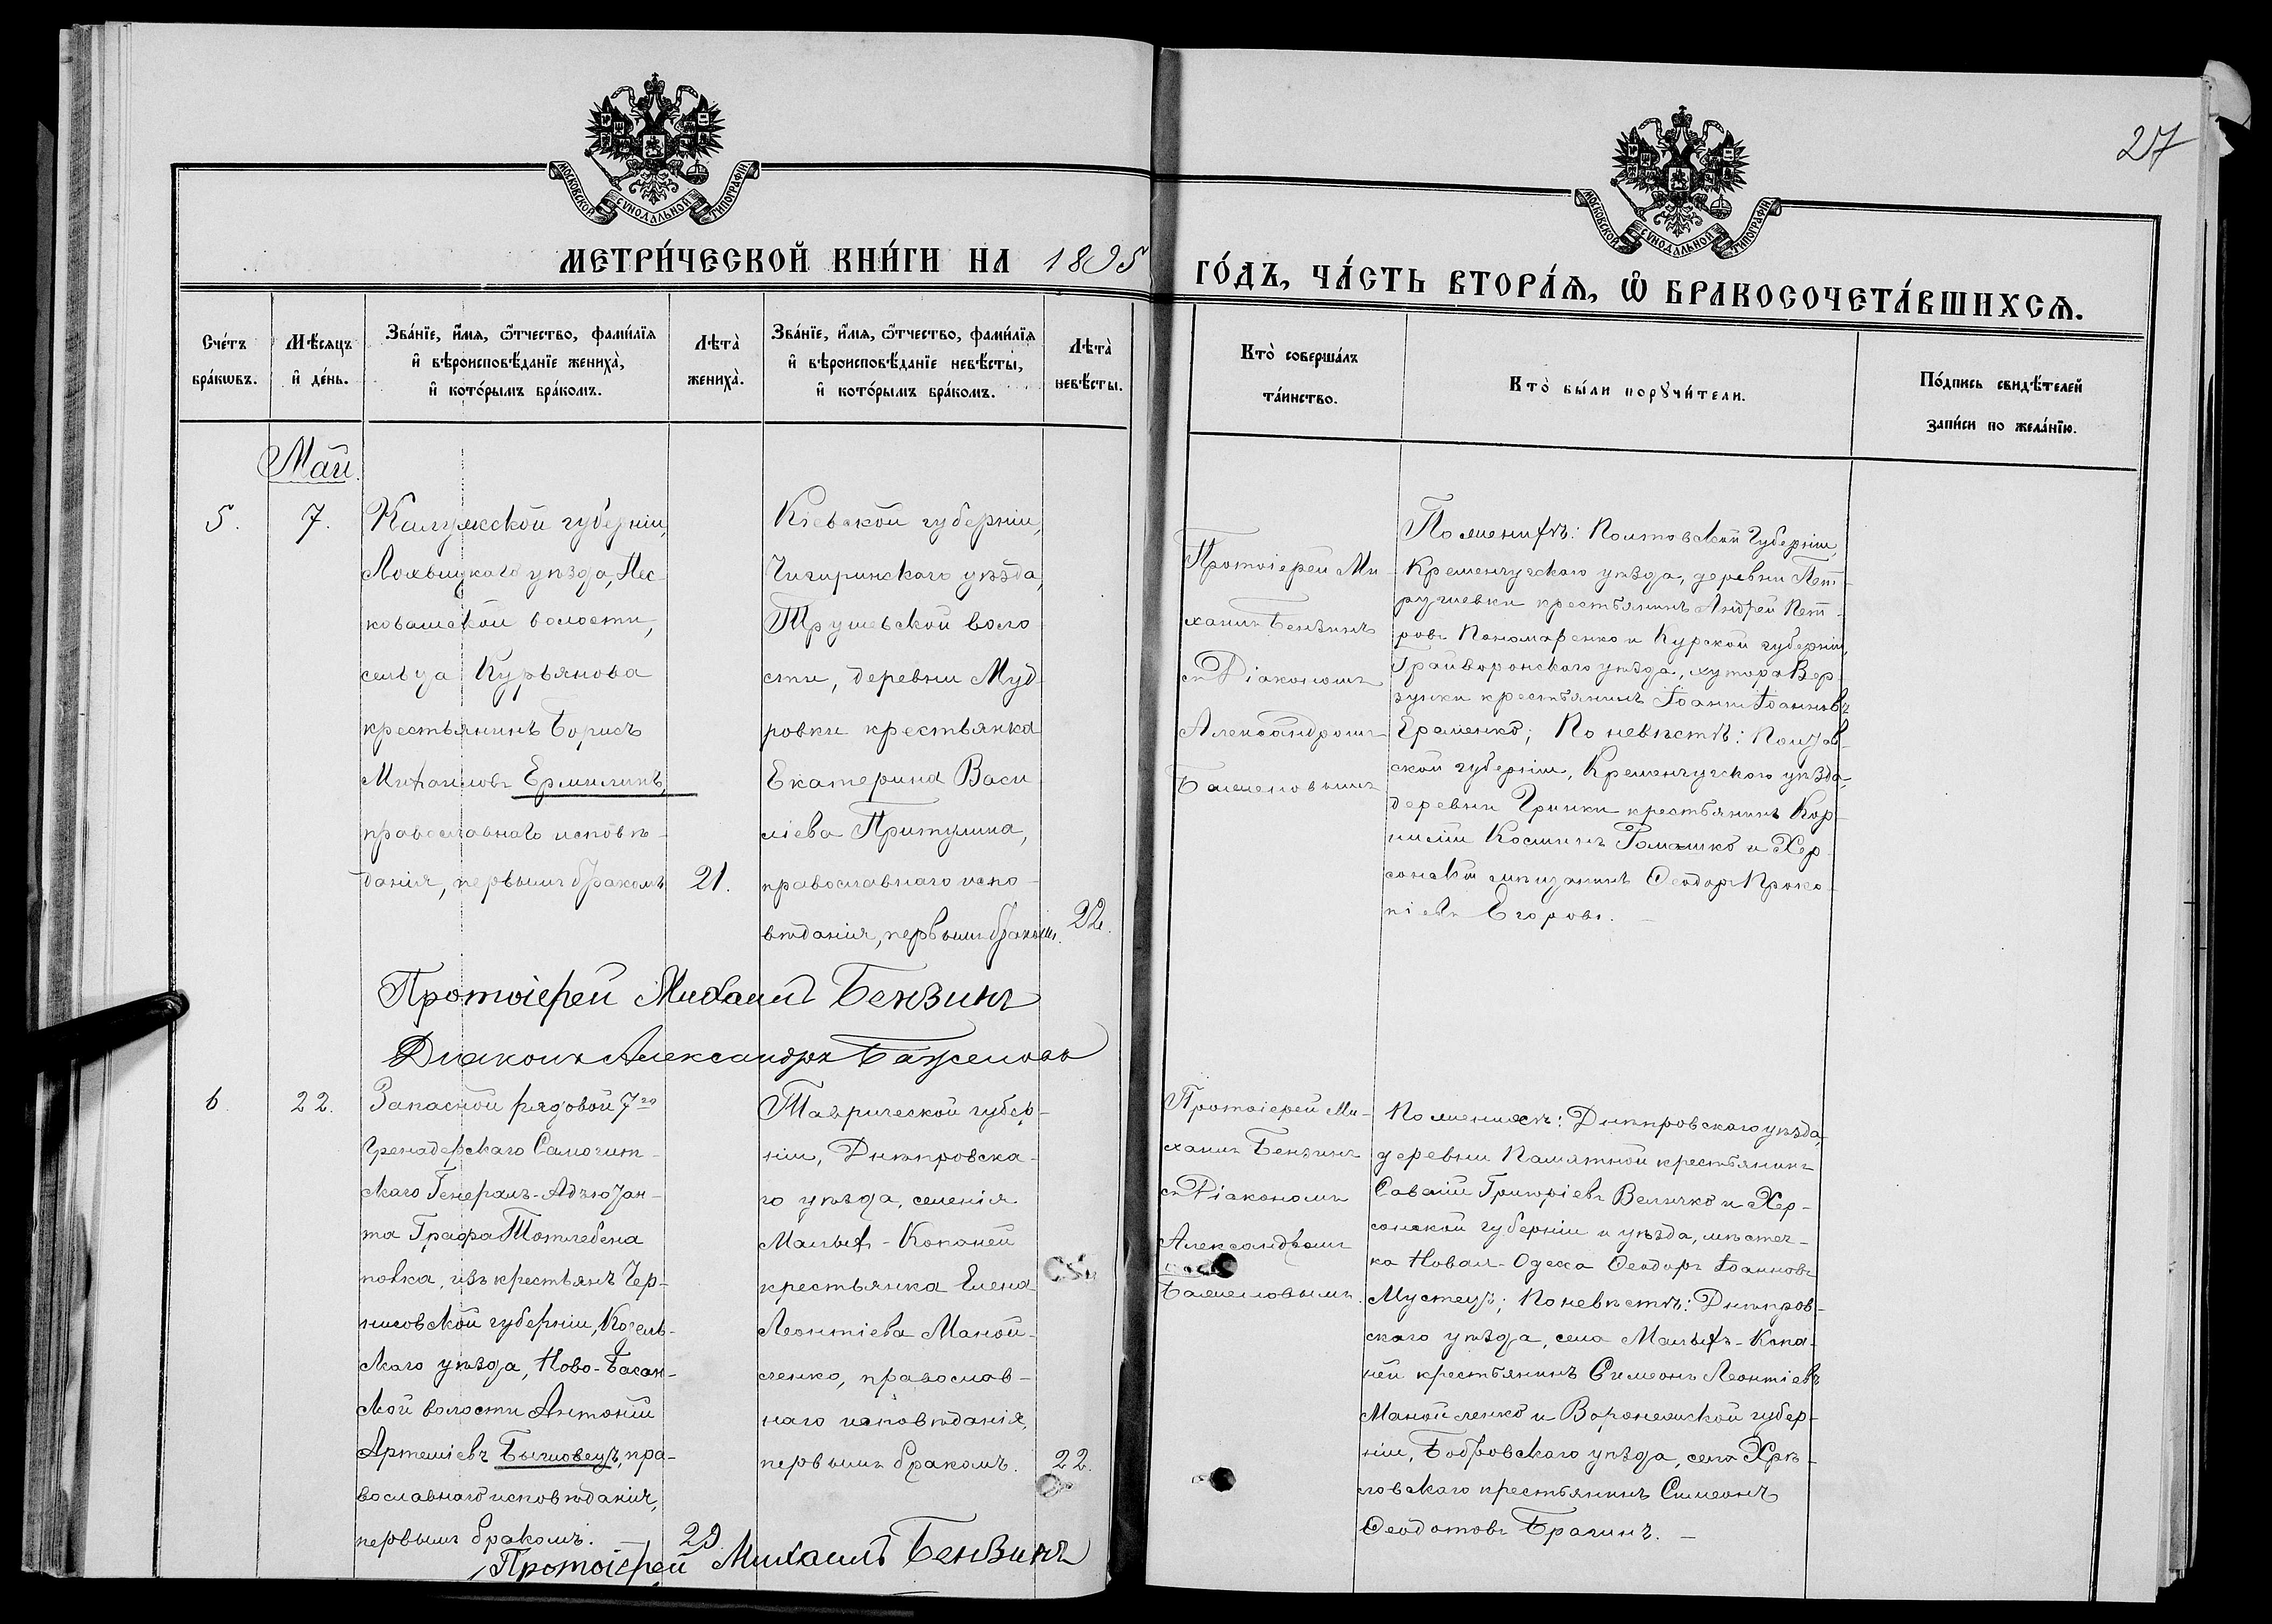 27
МОСКОВСКОЙ СѴНОДАЛЬНОЙ ТИПОГРАФІИ
МОСКОВСКОЙ СѴНОДАЛЬНОЙ ТИПОГРАФІИ
МЕТРИ́ЧЕСКОЙ КНИ́ГИ НА 1895
ГО́ДЪ, ЧА́СТЬ ВТОРА́Ѧ, Ѡ҆ БРАКОСОЧЕТА́ВШИХСѦ.
Сче́тъ
бра́кѡвъ.
Мѣ́сяцъ
и҆ де́нь.
Зва́нїе, и҆́мя, ѻ҆́тчество, фами́лїя
и҆ вѣроисповѣ́данїе жениха̀,
и҆ кото́рымъ бра́комъ.
Лѣта̀
жениха̀.
Зва́нїе, и҆́мя, ѻ҆́тчество, фами́лїя
и҆ вѣроисповѣ́данїе невѣ́сты,
и҆ кото́рымъ бра́комъ.
Лѣта̀
невѣ́сты.
Кто̀ соверша́лъ
та́инство.
Кто̀ бы́ли порꙋчи́тели.
По́дпись свидѣ́телей
за́писи по жела́нїю.
Май.
5.
7.
Калужской губерніи,
уѣзда, Пес-
волости,
сельца Курьянова
крестьянинъ Борисъ
Михаиловъ Ермилинъ,
православнаго исповѣ-
данія, первымъ бракомъ
21.
Кіевской губерніи,
Чигиринскаго уѣзда,
Трушевской воло
сти, деревни Муд-
ровки крестьянка
Екатерина Васи
ліева Притулина,
православнаго испо-
вѣданія, первымъ бракомъ.
22.
Протоіерей Ми-
хаилъ Бензинъ
съ Діакономъ
Александромъ
Баженовымъ
По женихѣ: Полтавской Губерніи,
Кременчугскаго уѣзда, деревни Пет-
рушевки крестьянинъ Андрей Пет-
ровъ Пономаренко и Курской губерніи,
Грайворонскаго уѣзда, хутора Вер-
зунки крестьянинъ Іоаннъ Іоанновъ
Ераменко; По невѣстѣ: Полтав-
ской губерніи, Кременчугскаго уѣзда,
деревни Гринки крестьянинъ Кор-
нилій Косминъ Ромашко и Хер-
сонскій мѣщанинъ Ѳеодоръ Проко-
піевъ Егоровъ. —
Протоіерей Михаилъ Бензинъ
Діаконъ Александръ Баженовъ
6.
22.
Запасной рядовой 7го
Гренадерскаго Самогит-
скаго Генералъ-Адъютан-
та Графа Тотлебена
полка, изъ крестьянъ Чер-
ниговской губерніи, Козель-
скаго уѣзда, Ново-Басан-
ской волости Антоній
Артеміевъ Быховецъ, пра-
вославнаго исповѣданія,
первымъ бракомъ.
29.
Таврической губер-
ніи, Днѣпровска-
го уѣзда, селенія
Малыхъ-Копаней
крестьянка Елена
Леонтіева Маной-
ленко, православ-
наго исповѣданія,
первымъ бракомъ.
22.
Протоіерей Ми-
хаилъ Бензинъ
съ Діакономъ
Александромъ
Баженовымъ.
По женихѣ: Днѣпровскаго уѣзда,
деревни Памятной крестьянинъ
Савелій Григоріевъ Величко и Хер-
сонской губерніи и уѣзда, мѣстеч-
ка Новая-Одесса Ѳеодоръ Іоанновъ
Мустецъ; По невѣстѣ: Днѣпров-
скаго уѣзда, села Малыхъ-Копа-
ней крестьянинъ Симеонъ Леонтіевъ
Манойленко и Воронежской губер-
ніи, Бобровскаго уѣзда, села Хрѣ-
новскаго крестьянинъ Симеонъ
Ѳеодотовъ Брагинъ. —
Протоіерей Михаилъ Бензинъ